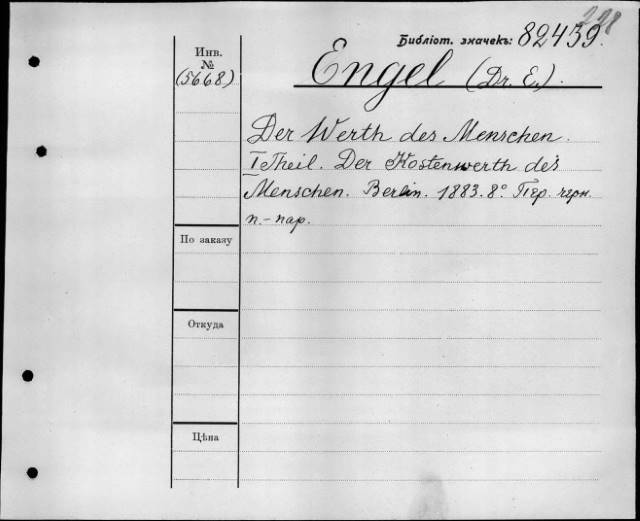 228
Библіот. значекъ: 82439.
Инв.
№
(5668)
Engel (Dr. E.).
Der Werth des Menschen.
I Theil. Der Kostenwerth des
Menschen. Berlin. 1883. 8° Пер. черн.
п.-пар.
По заказу
Откуда
Цѣна